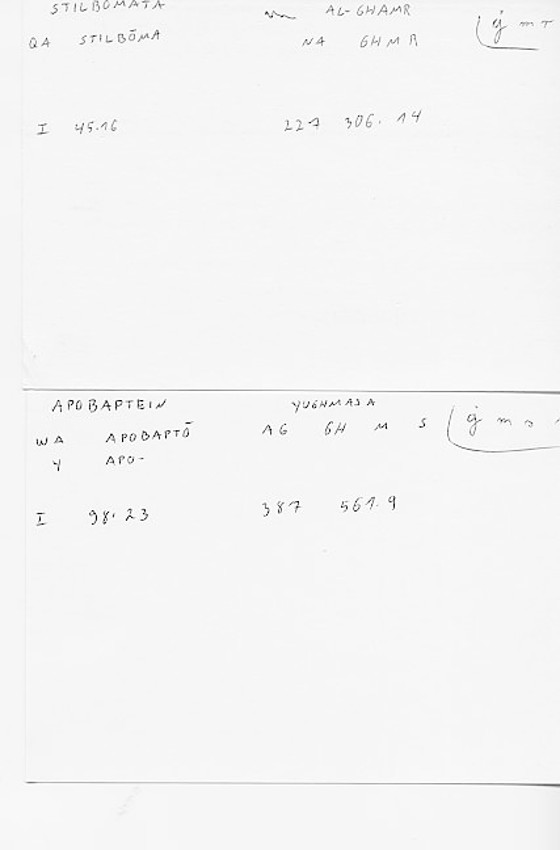 STILBŌMATA AL-GHAMR
QA STILBŌMA NA GH M R ġ m r
I 45.16 227 306. 14
APOBAPTEIN YUGHMASA
WA APOBAPTŌ AG GH M S ġ m s
Y APO-
I 98.23 387 561.9